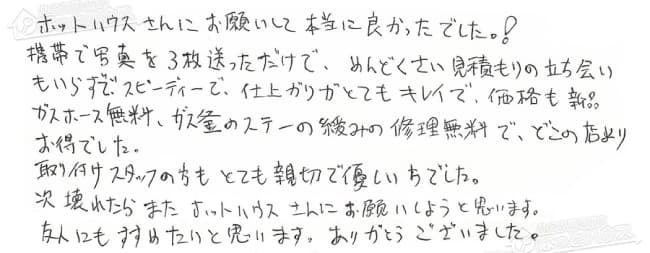 ホットハウスさんにお願いして本当に良かったでした。!
携帯で写真を3枚送っただけで、めんどくさい見積もりの立ち会い
もいらずでスピーディーで、仕上がりがとてもキレイで、価格も新品
ガスホース無料、ガス釜のステーの緩みの修理無料で、どこの店より
お得でした。
取り付けスタッフの方もとても親切で優しい方でした。
次壊れたらまたホットハウスさんにお願いしようと思います。
友人にもすすめたいと思います。ありがとうございました。